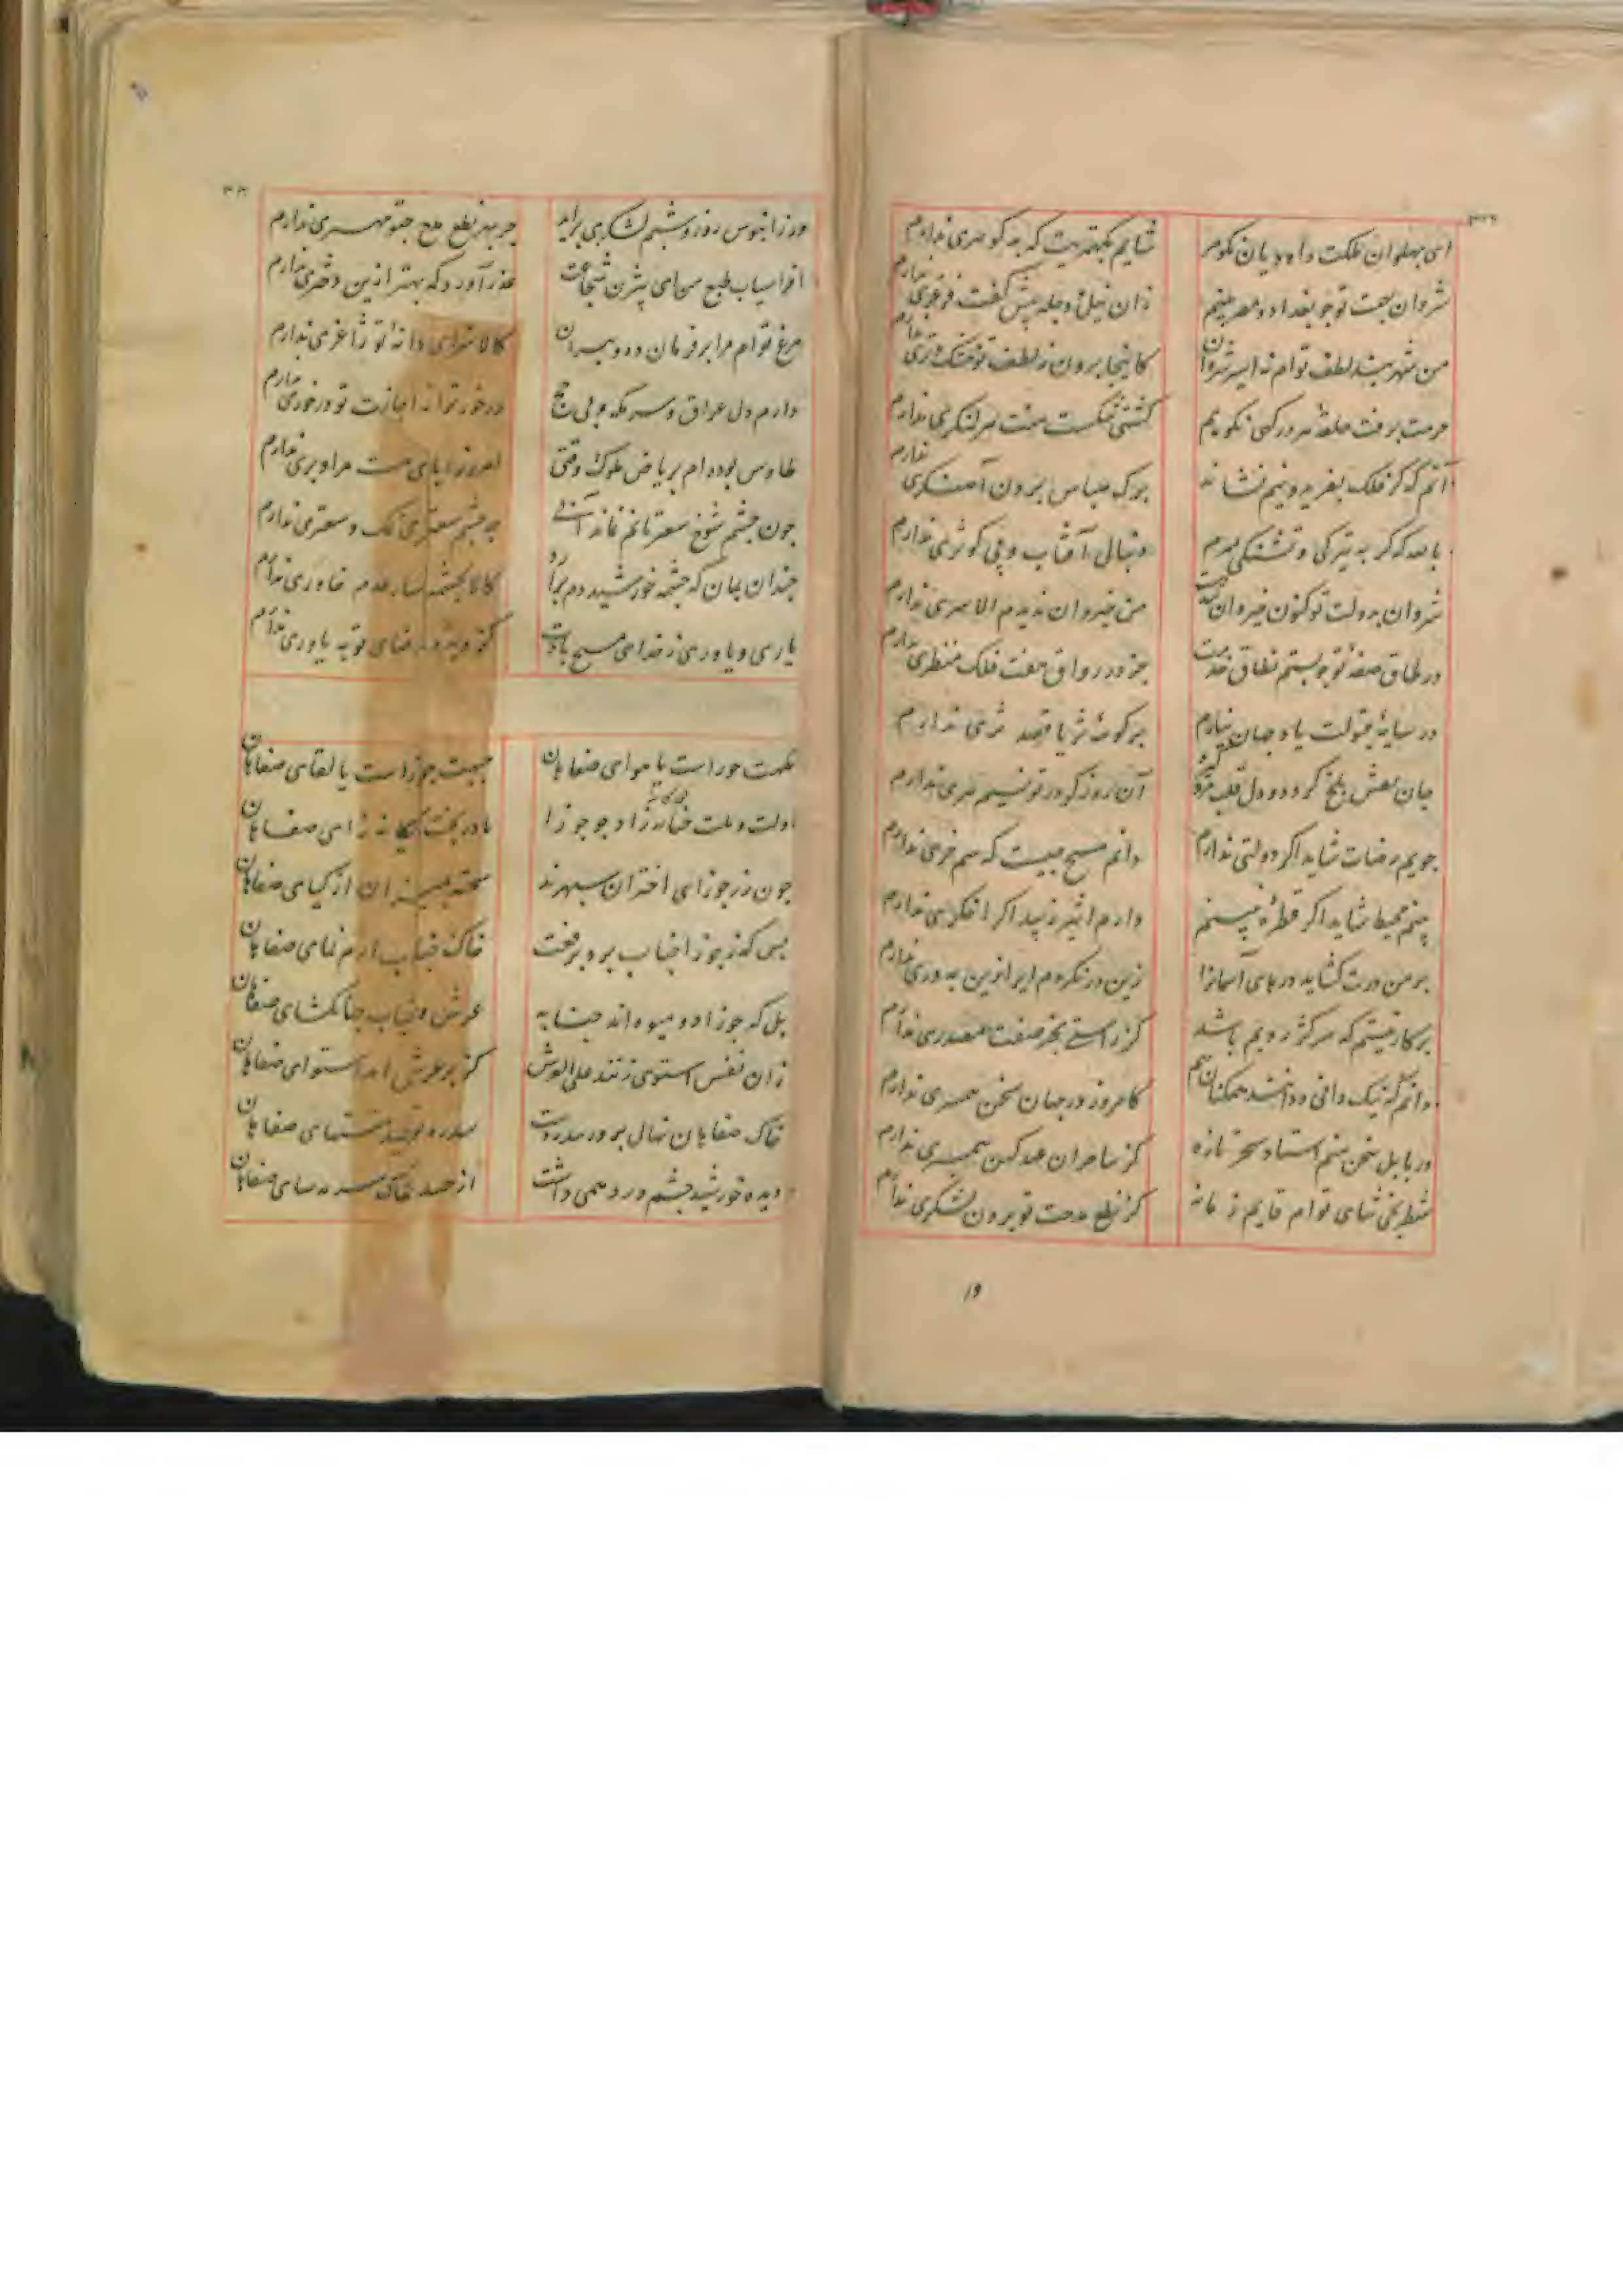 ای پهلوان ملکت داود یان کوهر شایم بکهتریت که بد کوهری ندارم
شروان بهمت تو چو بغداد و مصر بینم زان نیل و دجله پیش کفت فرغری ندارم
من شهربند لطف توام نه اسیر شروان کاینجا برون ز لطف تو خشک و تری ندارم
حرمت برفت حلقهٔ هر درکهی نکوبم کشتی شکست منت هر لنکری ندارم
آنم که کر فلک بفریدونیم نشاند برک سپاس بردن آهنکری ندارم
با بعد که کر به تیرکی و تشنکی بمیرم دنبال آفتاب و پی کوثری ندارم
شروان بدولت تو کنون خیروان شدست من خیروان ندیدم الا سری ندارم
در طاق صفهٔ تو چو بستم نطاق خدمت جز در رواق هفت فلک منظری ندارم
در سایهٔ قبولت یاد جهان نیارم بر کوههٔ ثریا قصد ثری ندارم
جان نعش بلخ کردد و دل قلب آن روز کز در تو نسیم هری ندارم
جویم رضات شاید اکر دولتی ندارم دانم مسیح چیست که سم خری ندارم
بینم محیط شاید اکر قطرهٔ نبینم دارم اثیر زیبد اکر اخکری ندارم
بر من درت کشاید درهای آسمانرا زین در نکردم ایرا ازین به دری ندارم
برکار نیستم که سر کژ رویم باشد کز راستی بجز صفت مصدری ندارم
دانم که نیک دانی و دانند همکنان هم کامروز در جهان سخن همسری ندارم
در بابل سخن منم استاد سحر تازه کز ساحران عهد کهن همسری ندارم
شطرنجی ثنای توام قایم زمانه کز نطع مدحت تو برون لشکری ندارم
۱۹
ور ز آبنوس روز و شبم لشکری برآید جز بهر نطع مدح چنو مهری ندارم
افراسیاب طبع من ای بیژن شجاعت عذر آورد که بهتر ازین دختری ندارم
مرغ توام مرا پر فرمان ده و بپران کالا سزای دانه تو ژاغری ندارم
دارم دل عراق و سر مکه و پی حج درخور تو از اجازت تو درخوری ندارم
طاوس بوده ام بریاض ملوک وقتی امروز پای هست مرا و پری ندارم
چون چشم شوخ سعتر نانم نماند آبی به چشم سعتری نمک و سعتری ندارم
چندان بمان که چشمهٔ خورشید دم برآرد کالا بچشمه سار عدم خاوری ندارم
یاری و یاوری ز خدای مسیح بادت کز دیده رضای تو به یاوری ندارم
نکهت حوراست یا هوای صفاهان جبهت جوزاست یا لقای صفاهان
دولت و ملت جنابه زاد چو جوزا مادر بخت یکانه زای صفاهان
چون زر جوزای اختران سپهرند سخته بمیزان از کیای صفاهان
بس که ز جوزا جناب برد برفعت خاک جناب ارم نمای صفاهان
بل که جوزا دو میوه اند جنابه عرش و جناب جهانکشای صفاهان
زان نفس استوی زنند علی العرش کز بر عرش آمد استوای صفاهان
خاک صفاهان نهال پرور سدره است سدره توحید منتهای صفاهان
دیده خورشید چشم درد همی داشت از حسد خاک سرمه سای صفاهان